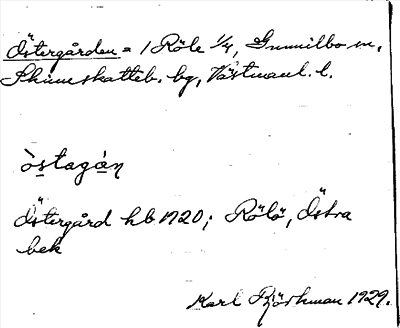 Östergården = 1 Röle 1/4, Gunnilbo sn,
Skinnskatteb. bg, Västmanl. l.
òstagá̱n
Östergård hb 1920; Rölö, Östra
bek
Karl Björkman 1929.